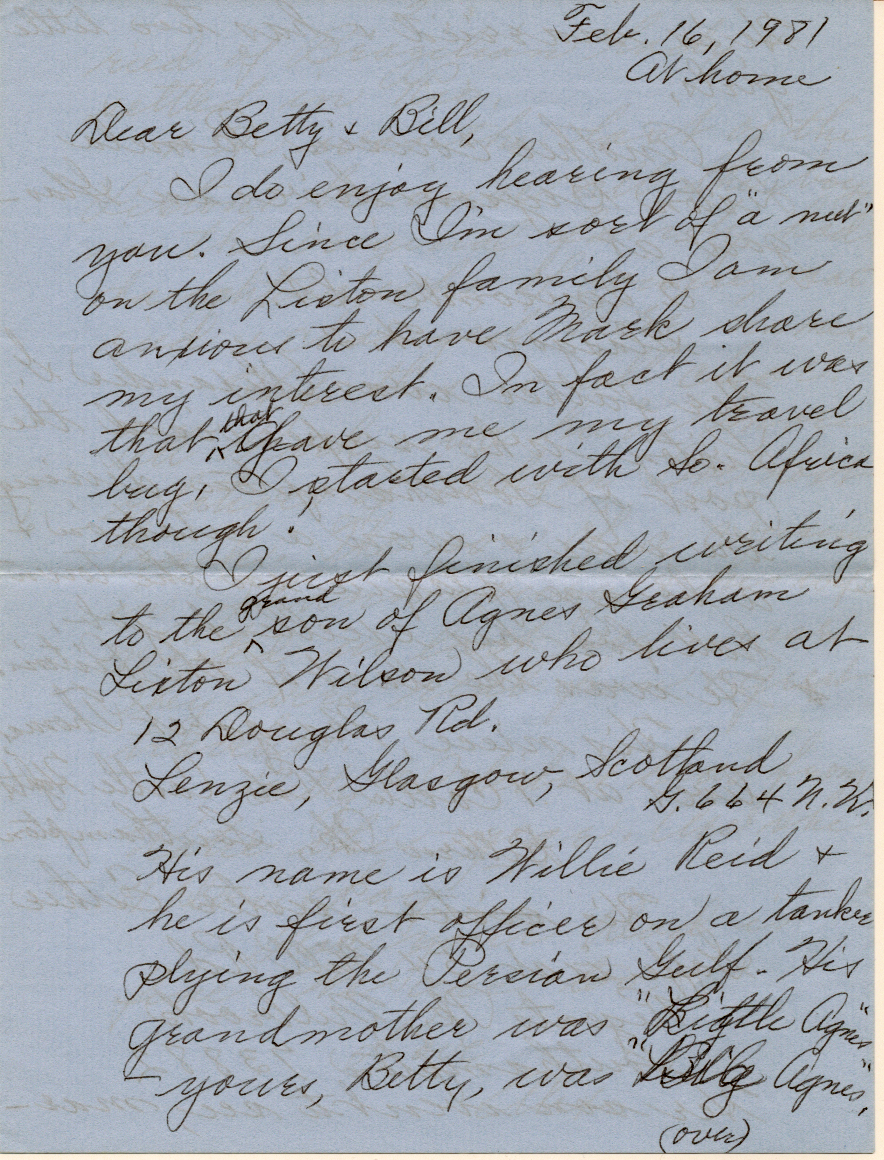 Feb. 16, 1981
At home
Dear Betty & Bill,
I do enjoy hearing from
you. Since I'm sort of "a nut"
on the Liston family I am
anxious to have Mark share
my interest. In fact it was
that that gave me my travel
bug, I started with So. Africa
though!
I just finished writing
to the grand son of Agnes Graham
Liston Wilson who lives at
12 Douglas Rd.
Lenzie, Glasgow, Scotland
G. 664 N.W.
His name is Willie Reid &
he is first officer on a tanker
plying the Persian Gulf. His
grandmother was "Little Agnes"
- yours, Betty, was "Big Agnes",
(over)